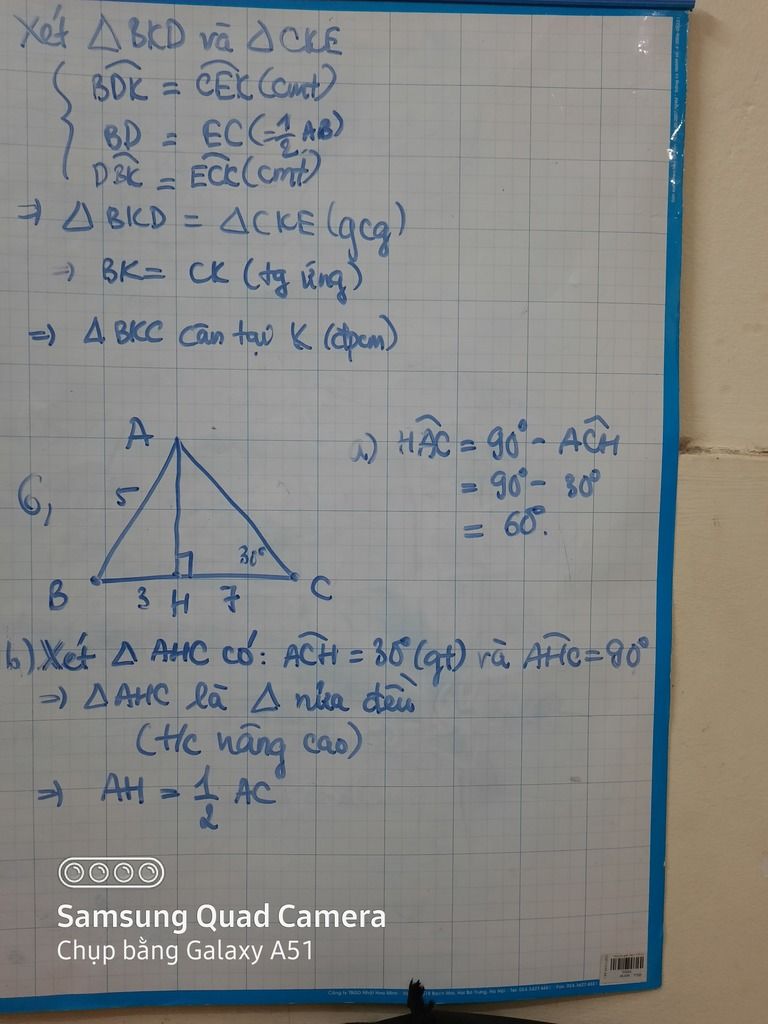 Xét △ BKD và △CKE
BDK = CEK (cmt)
BD = EC (=1/2 AB)
DBK = ECK (cmt)
=> △ BKD = △CKE (gcg)
=> BK = CK (tg ứng)
=> △ BKC cân tại K (đpcm)
6,
A
5
30°
B
3 H 7
C
a) HAC = 90° - ACH
= 90° - 30°
= 60°.
b) Xét △ AHC có: ACH = 30° (gt) và AHC = 90°
=> △ AHC là △ nửa đều
(t/c nâng cao)
=> AH = 1/2 AC
Samsung Quad Camera
Chụp bằng Galaxy A51